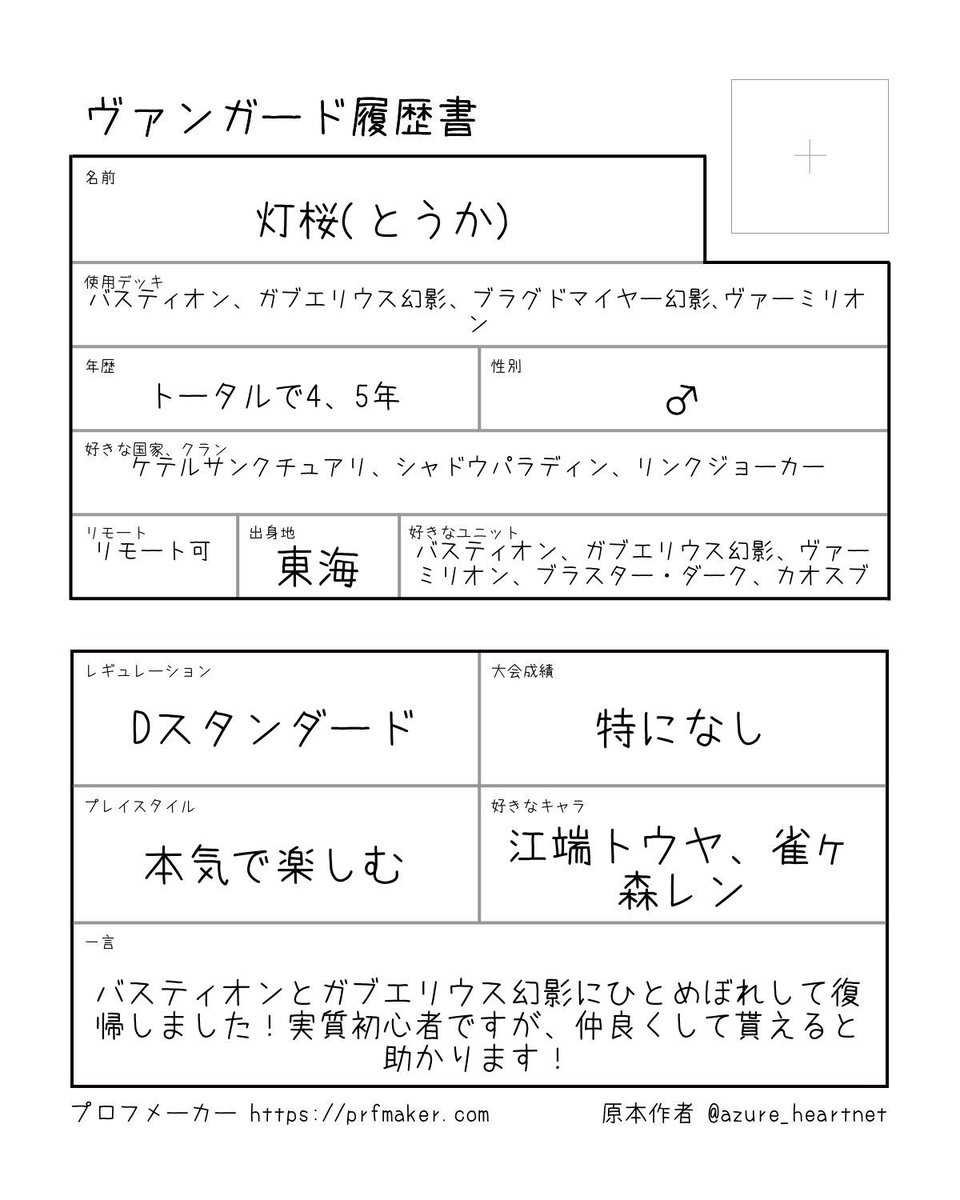 ヴァンガード履歴書
名前
灯桜(とうか)
使用デッキ
バスティオン、ガブエリウス幻影、ブラグドマイヤー幻影､ヴァーミリオ
ン
年歴
トータルで4、5年
性別
♂
好きな国家、クラン
ケテルサンクチュアリ、シャドウパラディン、リンクジョーカー
リモート
リモート可
出身地
東海
好きなユニット
バスティオン、ガブエリウス幻影、ヴァー
ミリオン、ブラスター・ダーク、カオスブ
レギュレーション
Dスタンダード
大会成績
特になし
プレイスタイル
本気で楽しむ
好きなキャラ
江端トウヤ、雀ヶ
森レン
一言
バスティオンとガブエリウス幻影にひとめぼれして復
帰しました！実質初心者ですが、仲良くして貰えると
助かります！
プロフメーカー https://prfmaker.com
原本作者 @azure_heartnet